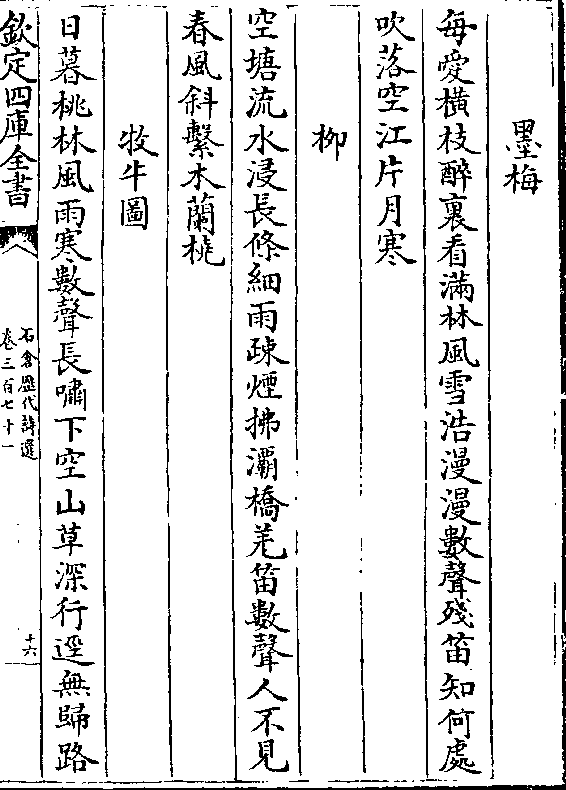 墨梅
每愛橫枝醉裏看滿林風雪浩漫漫數聲殘笛知何處
吹落空江片月寒
柳
空塘流水浸長條細雨疎煙拂灞橋羌笛數聲人不見
春風斜繫木蘭橈
牧牛圖
日暮桃林風雨寒數聲長嘯下空山草深行逕無歸路
欽定四庫全書
石倉歷代詩選
卷三百七十一
十六